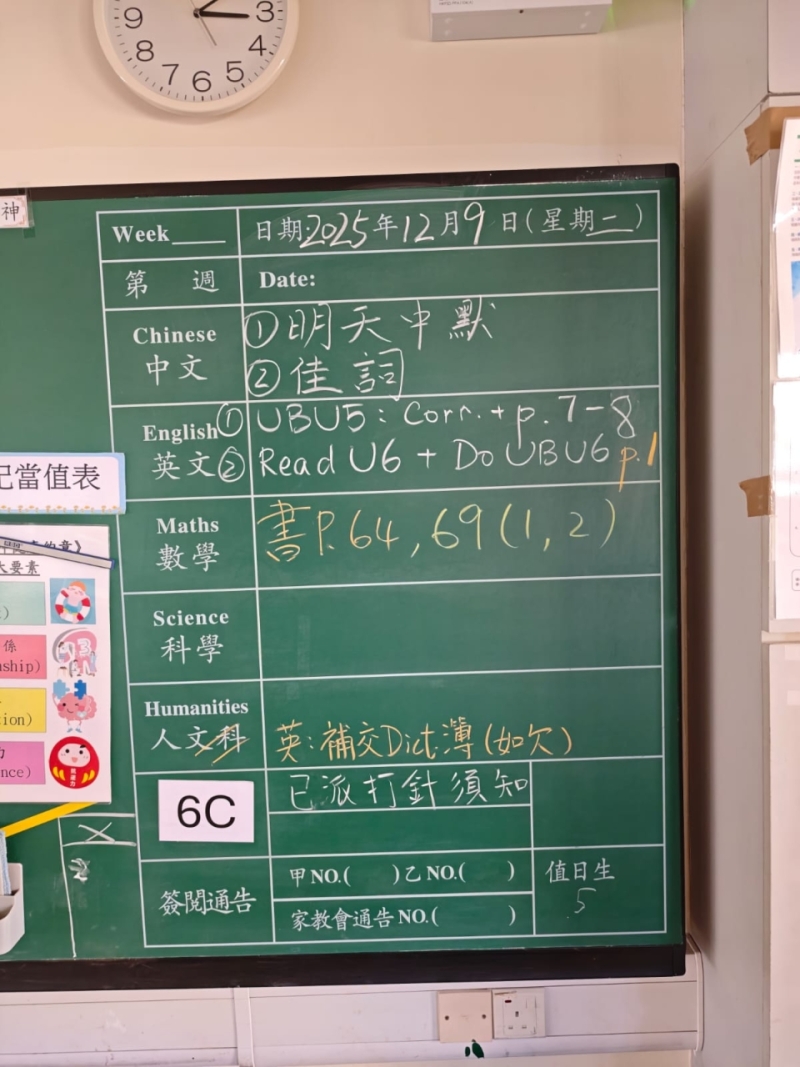 9 3
8 4
7 6 5
神
Week____ 日期:2025年12月9日(星期二)
第 週 Date:
Chinese ①明天中默
中文 ②佳詞
English ①UBU5: Corr. + p. 7-8
英文 ②Read U6 + Do UBU6 p.1
記當值表
Maths 書P.64, 69(1, 2)
數學
大要素
Science
科學
係
nship)
Humanities
人文科 英:補交Dict簿(如欠)
tion)
力
nce)
6C 已派打針須知
簽閱通告 甲NO.( )乙NO.( ) 值日生
家教會通告NO.( ) 5